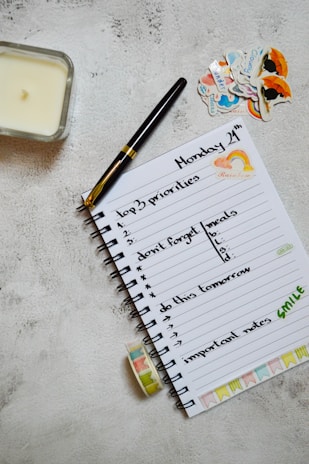 Monday 24th
top 3 priorities
1.
2.
3.
don't forget
*
*
*
*
meals
b.
l.
s.
d.
do this tomorrow
→
→
→
important notes
SMILE